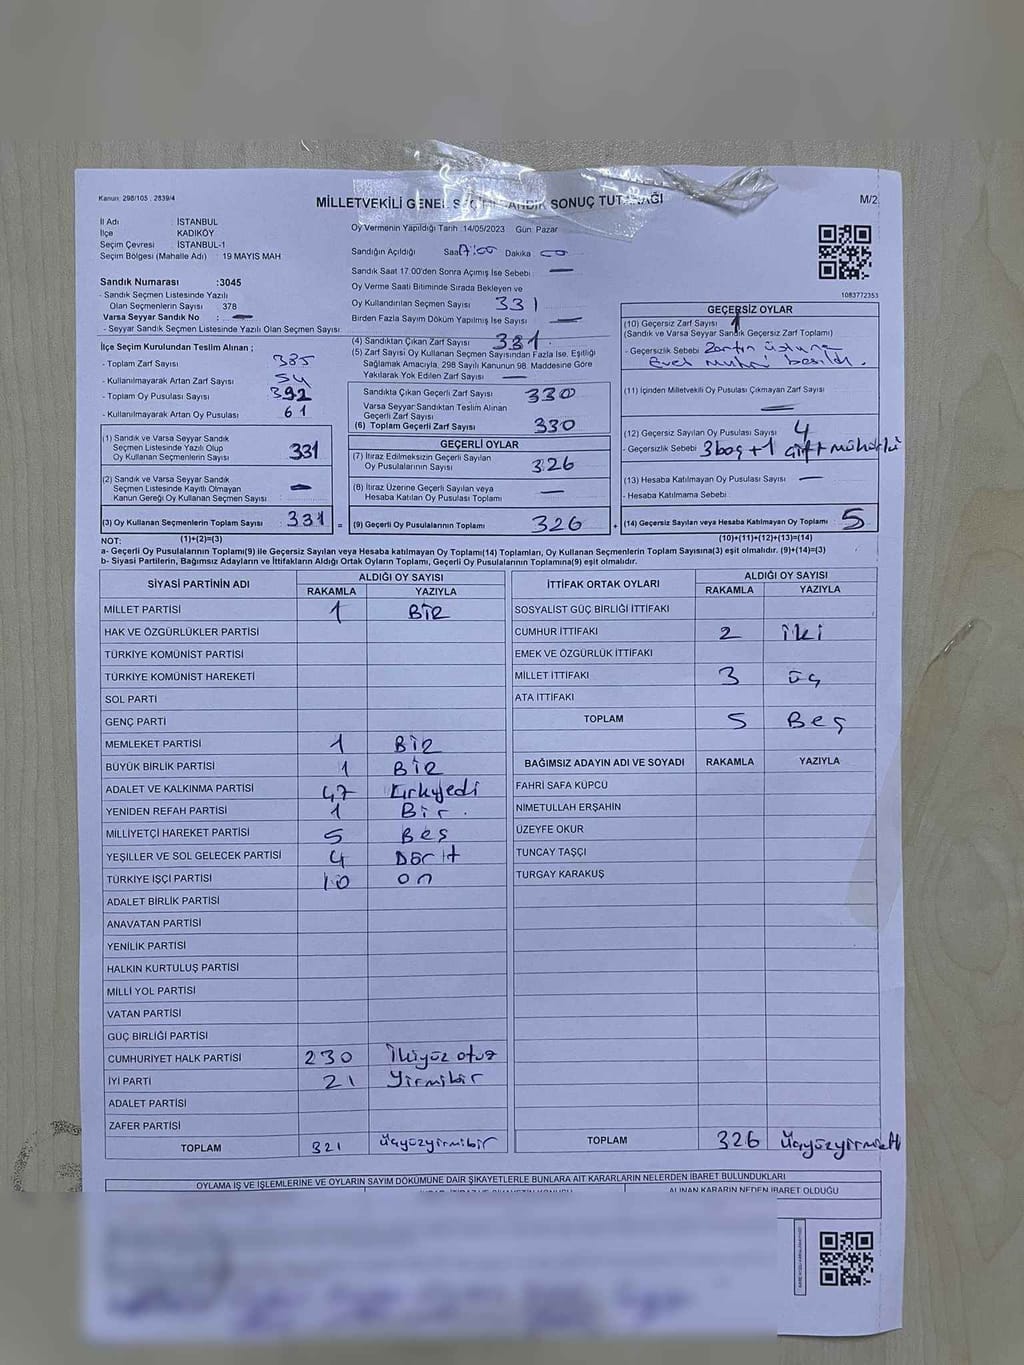 Kanun: 298/105 , 2839/4
MİLLETVEKİLİ GENEL SEÇİMİ SANDIK SONUÇ TUTANAĞI
M/2
İl Adı : İSTANBUL
İlçe : KADIKÖY
Seçim Çevresi : İSTANBUL-1
Seçim Bölgesi (Mahalle Adı) : 19 MAYIS MAH
Oy Vermenin Yapıldığı Tarih :14/05/2023 Gün: Pazar
Sandığın Açıldığı Saat 17:00 Dakika 00
Sandık Saat 17.00'den Sonra Açımış İse Sebebi : —
Oy Verme Saati Bitiminde Sırada Bekleyen ve
Oy Kullandırılan Seçmen Sayısı 331
Birden Fazla Sayım Döküm Yapılmış İse Sayısı : —
1083772353
Sandık Numarası :3045
- Sandık Seçmen Listesinde Yazılı
Olan Seçmenlerin Sayısı : 378
Varsa Seyyar Sandık No : —
- Seyyar Sandık Seçmen Listesinde Yazılı Olan Seçmen Sayısı:
İlçe Seçim Kurulundan Teslim Alınan ;
- Toplam Zarf Sayısı : 385
- Kullanılmayarak Artan Zarf Sayısı : 54
- Toplam Oy Pusulası Sayısı : 392
- Kullanılmayarak Artan Oy Pusulası : 61
(1) Sandık ve Varsa Seyyar Sandık
Seçmen Listesinde Yazılı Olup
Oy Kullanan Seçmenlerin Sayısı : 331
(2) Sandık ve Varsa Seyyar Sandık
Seçmen Listesinde Kayıtlı Olmayan
Kanun Gereği Oy Kullanan Seçmen Sayısı : —
(3) Oy Kullanan Seçmenlerin Toplam Sayısı : 331 =
(1)+(2)=(3)
(4) Sandıktan Çıkan Zarf Sayısı : 331
(5) Zarf Sayısı Oy Kullanan Seçmen Sayısından Fazla İse, Eşitliği
Sağlamak Amacıyla, 298 Sayılı Kanunun 98. Maddesine Göre
Yakılarak Yok Edilen Zarf Sayısı : —
Sandıkta Çıkan Geçerli Zarf Sayısı : 330
Varsa Seyyar Sandıktan Teslim Alınan
Geçerli Zarf Sayısı :
(6) Toplam Geçerli Zarf Sayısı : 330
GEÇERLİ OYLAR
(7) İtiraz Edilmeksizin Geçerli Sayılan
Oy Pusulalarının Sayısı : 326
(8) İtiraz Üzerine Geçerli Sayılan veya
Hesaba Katılan Oy Pusulası Toplamı : —
(9) Geçerli Oy Pusulalarının Toplamı : 326 +
GEÇERSİZ OYLAR
(10) Geçersiz Zarf Sayısı : 1
(Sandık ve Varsa Seyyar Sandık Geçersiz Zarf Toplamı)
- Geçersizlik Sebebi : Zarfın üstüne
Evet Mührü basıldı.
(11) İçinden Milletvekili Oy Pusulası Çıkmayan Zarf Sayısı :
—
(12) Geçersiz Sayılan Oy Pusulası Sayısı : 4
- Geçersizlik Sebebi : 3 boş + 1 çift mühürlü
(13) Hesaba Katılmayan Oy Pusulası Sayısı : —
- Hesaba Katılmama Sebebi :
(14) Geçersiz Sayılan veya Hesaba Katılmayan Oy Toplamı : 5
(10)+(11)+(12)+(13)=(14)
NOT:
a- Geçerli Oy Pusulalarının Toplamı(9) ile Geçersiz Sayılan veya Hesaba katılmayan Oy Toplamı(14) Toplamları, Oy Kullanan Seçmenlerin Toplam Sayısına(3) eşit olmalıdır. (9)+(14)=(3)
b- Siyasi Partilerin, Bağımsız Adayların ve İttifakların Aldığı Ortak Oyların Toplamı, Geçerli Oy Pusulalarının Toplamına(9) eşit olmalıdır.
SİYASİ PARTİNİN ADI ALDIĞI OY SAYISI
RAKAMLA YAZIYLA
MİLLET PARTİSİ 1 BİR
HAK VE ÖZGÜRLÜKLER PARTİSİ
TÜRKİYE KOMÜNİST PARTİSİ
TÜRKİYE KOMÜNİST HAREKETİ
SOL PARTİ
GENÇ PARTİ
MEMLEKET PARTİSİ 1 BİR
BÜYÜK BİRLİK PARTİSİ 1 BİR
ADALET VE KALKINMA PARTİSİ 47 Kırkyedi
YENİDEN REFAH PARTİSİ 1 Bir.
MİLLİYETÇİ HAREKET PARTİSİ 5 Beş
YEŞİLLER VE SOL GELECEK PARTİSİ 4 Dört
TÜRKİYE İŞÇİ PARTİSİ 10 on
ADALET BİRLİK PARTİSİ
ANAVATAN PARTİSİ
YENİLİK PARTİSİ
HALKIN KURTULUŞ PARTİSİ
MİLLİ YOL PARTİSİ
VATAN PARTİSİ
GÜÇ BİRLİĞİ PARTİSİ
CUMHURİYET HALK PARTİSİ 230 İkiyüz otuz
İYİ PARTİ 21 Yirmibir
ADALET PARTİSİ
ZAFER PARTİSİ
TOPLAM 321 Üçyüzyirmibir
İTTİFAK ORTAK OYLARI ALDIĞI OY SAYISI
RAKAMLA YAZIYLA
SOSYALİST GÜÇ BİRLİĞİ İTTİFAKI
CUMHUR İTTİFAKI 2 iki
EMEK VE ÖZGÜRLÜK İTTİFAKI
MİLLET İTTİFAKI 3 üç
ATA İTTİFAKI
TOPLAM 5 Beş
BAĞIMSIZ ADAYIN ADI VE SOYADI RAKAMLA YAZIYLA
FAHRİ SAFA KÜPCÜ
NİMETULLAH ERŞAHİN
ÜZEYFE OKUR
TUNCAY TAŞÇI
TURGAY KARAKUŞ
TOPLAM 326 Üçyüzyirmialtı
OYLAMA İŞ VE İŞLEMLERİNE VE OYLARIN SAYIM DÖKÜMÜNE DAİR ŞİKAYETLERLE BUNLARA AİT KARARLARIN NELERDEN İBARET BULUNDUKLARI
ALINAN KARARIN NEDEN İBARET OLDUĞU